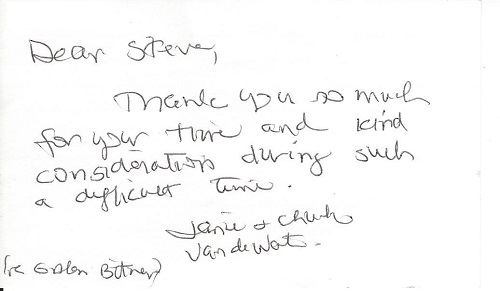 Dear Steve,
Thank you so much
for your time and kind
consideration during such
a difficult time.
Janie & Chuck
Van de Wat.
(re Bittner)